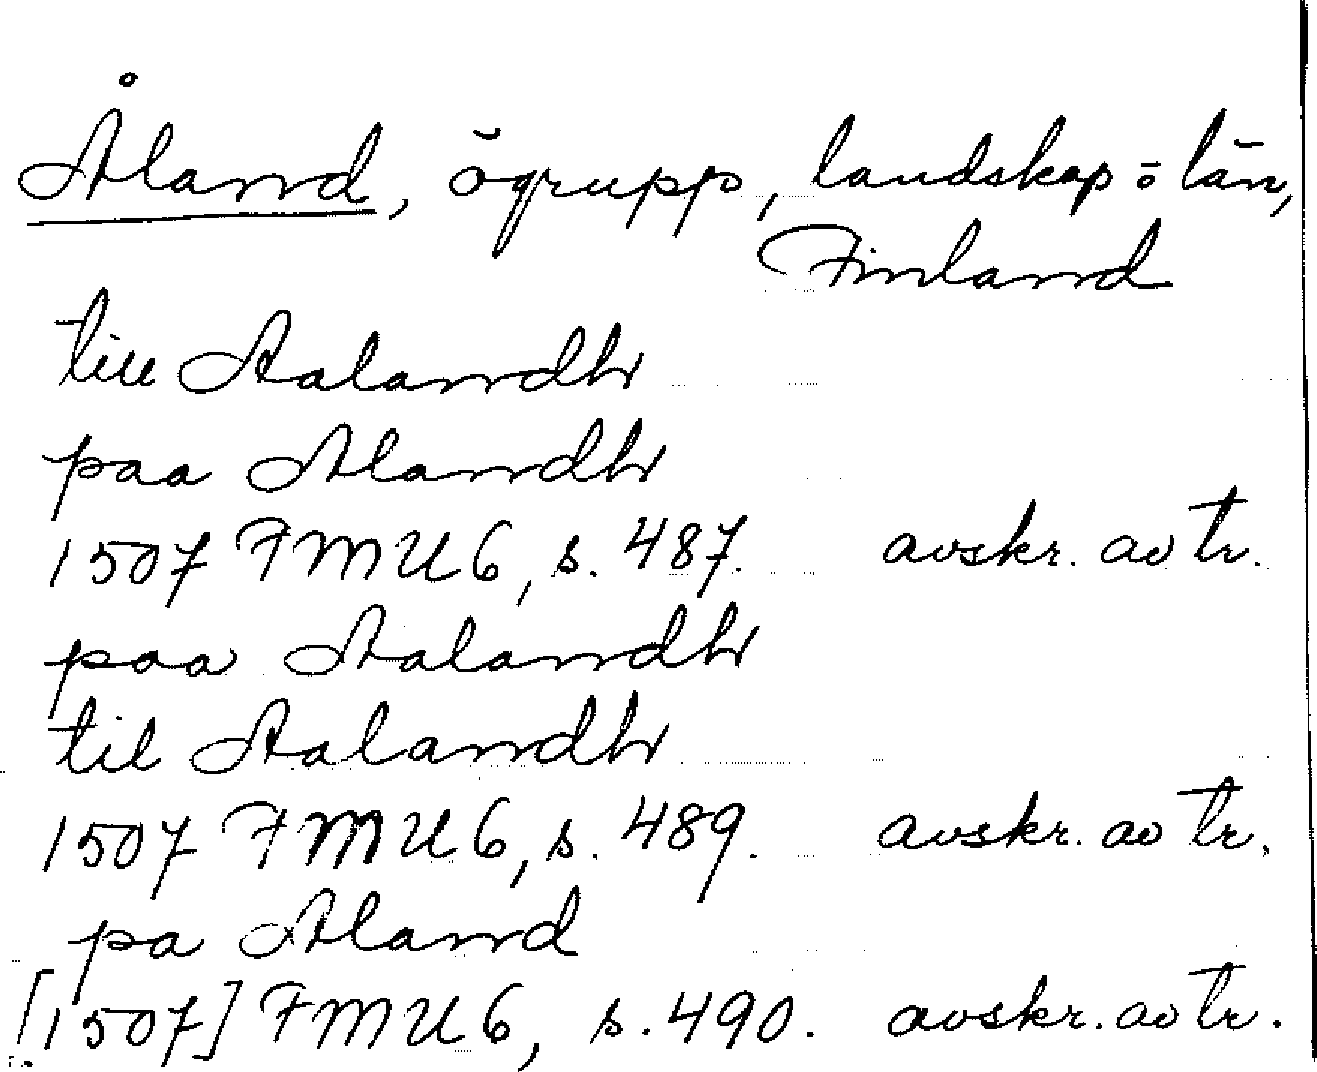 Åland, ögrupp, landskap o län,
Finland
till Aalandh
paa Alandh
1507 FMU 6, s. 487. avskr. av tr.
paa Aalandh
til Aalandh
1507 FMU 6, s. 489. avskr. av tr.
pa Aland
[1507] FMU 6, s. 490. avskr. av tr.